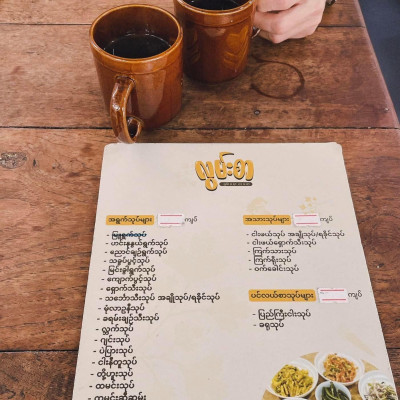 လွမ်းစာ
အရွက်သုပ်များ ကျပ်
- မြူရွက်သုပ်
- ဟင်းနုနယ်ရွက်သုပ်
- ညောင်ချဉ်ရွက်သုပ်
- သခွပ်ပွင့်သုပ်
- မြင်းခွါရွက်သုပ်
- ကျောက်ပွင့်သုပ်
- ရှောက်သီးသုပ်
- သင်္ဘောသီးသုပ် အချိုသုပ်/ရခိုင်သုပ်
- မုံလာဥနီသုပ်
- ခရမ်းချဉ်သီးသုပ်
- လ္ဘက်သုပ်
- ဂျင်းသုပ်
- ပဲပြားသုပ်
- ငါးနီတူသုပ်
- တို့ဟူးသုပ်
- ထမင်းသုပ်
- ထမင်းဆီဆမ်း
အသားသုပ်များ ကျပ်
- ငါးဖယ်သုပ် အချိုသုပ်/ရခိုင်သုပ်
- ငါးဖယ်ရှောက်သီးသုပ်
- ကြက်သားသုပ်
- ကြက်ရိုးသုပ်
- ဝက်ခေါင်းသုပ်
ပင်လယ်စာသုပ်များ ကျပ်
- ပြည်ကြီးငါးသုပ်
- ခရုသုပ်